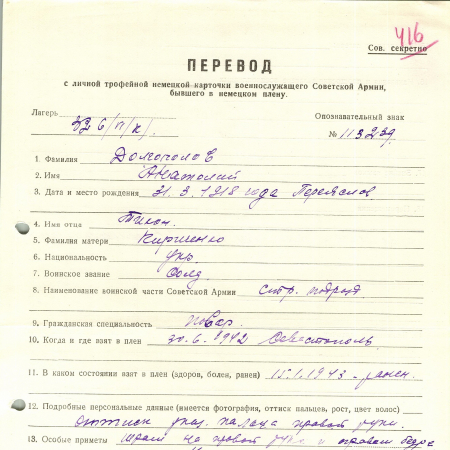 416
Сов. секретно
ПЕРЕВОД
с личной трофейной немецкой карточки военнослужащего Советской Армии,
бывшего в немецком плену.
Лагерь 326/П/К/.
Опознавательный знак
№ 113239.
1. Фамилия Долгополов
2. Имя Анатолий
3. Дата и место рождения 31.3.1918 года Переяслов.
4. Имя отца Тихон.
5. Фамилия матери Кириенко
6. Национальность укр.
7. Воинское звание Солд.
8. Наименование воинской части Советской Армии стр.
9. Гражданская специальность повар.
10. Когда и где взят в плен 30.6.1942 Севастополь
11. В каком состоянии взят в плен (здоров, болен, ранен) 15.1.1943 - ранен.
12. Подробные персональные данные (имеется фотография, оттиск пальцев, рост, цвет волос)
оттиск указ. пальца правой руки.
13. Особые приметы шрам на правой руке и правом бедре